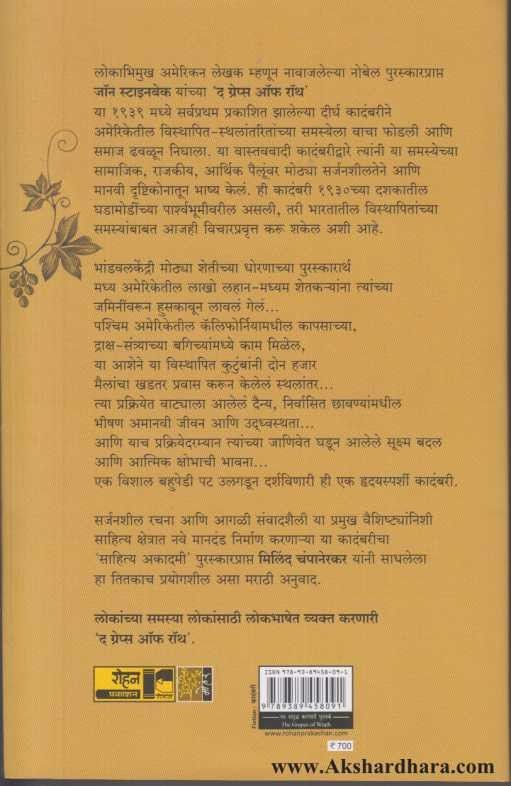 लोकाभिमुख अमेरिकन लेखक म्हणून नावाजलेल्या नोबेल पुरस्कारप्राप्त
जॉन स्टाइनबेक यांच्या ‘द ग्रेप्स ऑफ रॉथ’
या १९३९ मध्ये सर्वप्रथम प्रकाशित झालेल्या दीर्घ कादंबरीने
अमेरिकेतील विस्थापित-स्थलांतरितांच्या समस्येला वाचा फोडली आणि
समाज ढवळून निघाला. या वास्तववादी कादंबरीद्वारे त्यांनी या समस्येच्या
सामाजिक, राजकीय, आर्थिक पैलूंवर मोठ्या सर्जनशीलतेने आणि
मानवी दृष्टिकोनातून भाष्य केलं. ही कादंबरी १९३०च्या दशकातील
घडामोडींच्या पार्श्वभूमीवरील असली, तरी भारतातील विस्थापितांच्या
समस्यांबाबत आजही विचारप्रवृत्त करू शकेल अशी आहे.
भांडवलकेंद्री मोठ्या शेतीच्या धोरणाच्या पुरस्कारार्थ
मध्य अमेरिकेतील लाखो लहान-मध्यम शेतकऱ्यांना त्यांच्या
जमिनींवरून हुसकावून लावलं गेलं...
पश्चिम अमेरिकेतील कॅलिफोर्नियामधील कापसाच्या,
द्राक्ष-संत्र्याच्या बगिच्यांमध्ये काम मिळेल,
या आशेने या विस्थापित कुटुंबांनी दोन हजार
मैलांचा खडतर प्रवास करून केलेलं स्थलांतर...
त्या प्रक्रियेत वाट्याला आलेलं दैन्य, निर्वासित छावण्यांमधील
भीषण अमानवी जीवन आणि उद्ध्वस्तता...
आणि याच प्रक्रियेदरम्यान त्यांच्या जाणिवेत घडून आलेले सूक्ष्म बदल
आणि आत्मिक क्षोभाची भावना...
एक विशाल बहुपेडी पट उलगडून दर्शविणारी ही एक हृदयस्पर्शी कादंबरी.
सर्जनशील रचना आणि आगळी संवादशैली या प्रमुख वैशिष्ट्यांनिशी
साहित्य क्षेत्रात नवे मानदंड निर्माण करणाऱ्या या कादंबरीचा
‘साहित्य अकादमी’ पुरस्कारप्राप्त मिलिंद चंपानेरकर यांनी साधलेला
हा तितकाच प्रयोगशील असा मराठी अनुवाद.
लोकांच्या समस्या लोकांसाठी लोकभाषेत व्यक्त करणारी
‘द ग्रेप्स ऑफ रॉथ’.
रोहन
प्रकाशन
Fiction कादंबरी
ISBN 978-93-89458-09-1
9 789389 458091
The Grapes of Wrath
www.rohanprakashan.com
₹ 700
www.Akshardhara.com